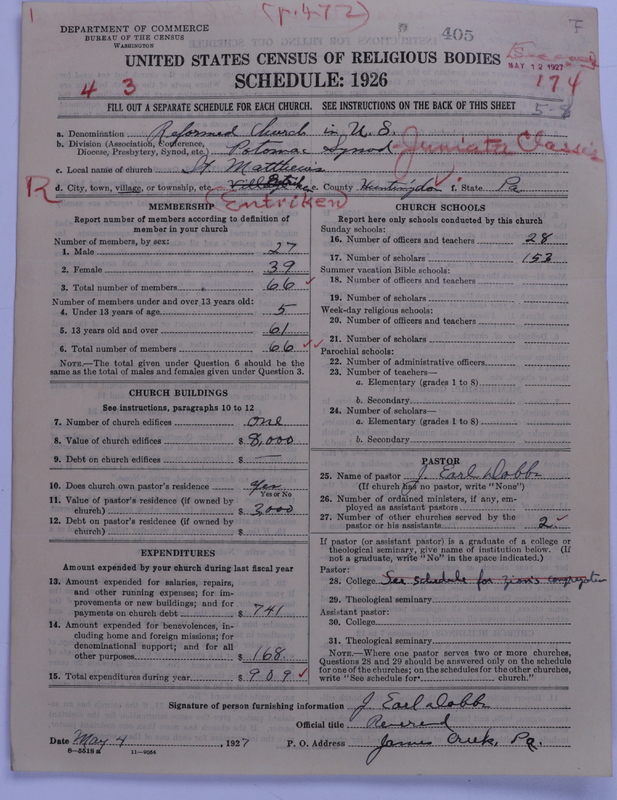 (p.472)
DEPARTMENT OF COMMERCE
BUREAU OF THE CENSUS
WASHINGTON
405
F
UNITED STATES CENSUS OF RELIGIOUS BODIES
MAY 12 1927
SCHEDULE: 1926
174
4 3
FILL OUT A SEPARATE SCHEDULE FOR EACH CHURCH. SEE INSTRUCTIONS ON THE BACK OF THIS SHEET
5-8
a. Denomination Reformed Church in U.S.
b. Division (Association, Conference, Diocese, Presbytery, Synod, etc.) Potomac Synod - Juniata Classis
c. Local name of church St. Matthew's
R d. City, town, village, or township, etc. e. County Huntingdon f. State Pa
Entriken
MEMBERSHIP
Report number of members according to definition of member in your church
Number of members, by sex:
1. Male 27
2. Female 39
3. Total number of members 66
Number of members under and over 13 years old:
4. Under 13 years of age 5
5. 13 years old and over 61
6. Total number of members 66
NOTE.—The total given under Question 6 should be the same as the total of males and females given under Question 3.
CHURCH BUILDINGS
See instructions, paragraphs 10 to 12
7. Number of church edifices one
8. Value of church edifices $ 8,000
9. Debt on church edifices $ —
10. Does church own pastor's residence yes
Yes or No
11. Value of pastor's residence (if owned by church) $ 3,000
12. Debt on pastor's residence (if owned by church) $
EXPENDITURES
Amount expended by your church during last fiscal year
13. Amount expended for salaries, repairs, and other running expenses; for improvements or new buildings; and for payments on church debt $ 741
14. Amount expended for benevolences, including home and foreign missions; for denominational support; and for all other purposes $ 168
15. Total expenditures during year $ 909
CHURCH SCHOOLS
Report here only schools conducted by this church
Sunday schools:
16. Number of officers and teachers 28
17. Number of scholars 153
Summer vacation Bible schools:
18. Number of officers and teachers
19. Number of scholars
Week-day religious schools:
20. Number of officers and teachers
21. Number of scholars
Parochial schools:
22. Number of administrative officers
23. Number of teachers—
a. Elementary (grades 1 to 8)
b. Secondary
24. Number of scholars—
a. Elementary (grades 1 to 8)
b. Secondary
PASTOR
25. Name of pastor J. Earl Dobbs
(If church has no pastor, write "None")
26. Number of ordained ministers, if any, employed as assistant pastors
27. Number of other churches served by the pastor or his assistants 2
If pastor (or assistant pastor) is a graduate of a college or theological seminary, give name of institution below. (If not a graduate, write "No" in the space indicated.)
Pastor:
28. College See schedule for Zion's congregation
29. Theological seminary
Assistant pastor:
30. College
31. Theological seminary
NOTE.—Where one pastor serves two or more churches, Questions 28 and 29 should be answered only on the schedule for one of the churches; on the schedules for the other churches, write "See schedule for church."
Signature of person furnishing information J. Earl Dobbs
Official title Reverend
Date May 4, 1927 P. O. Address James Creek, Pa.
8-5518a 11-9054